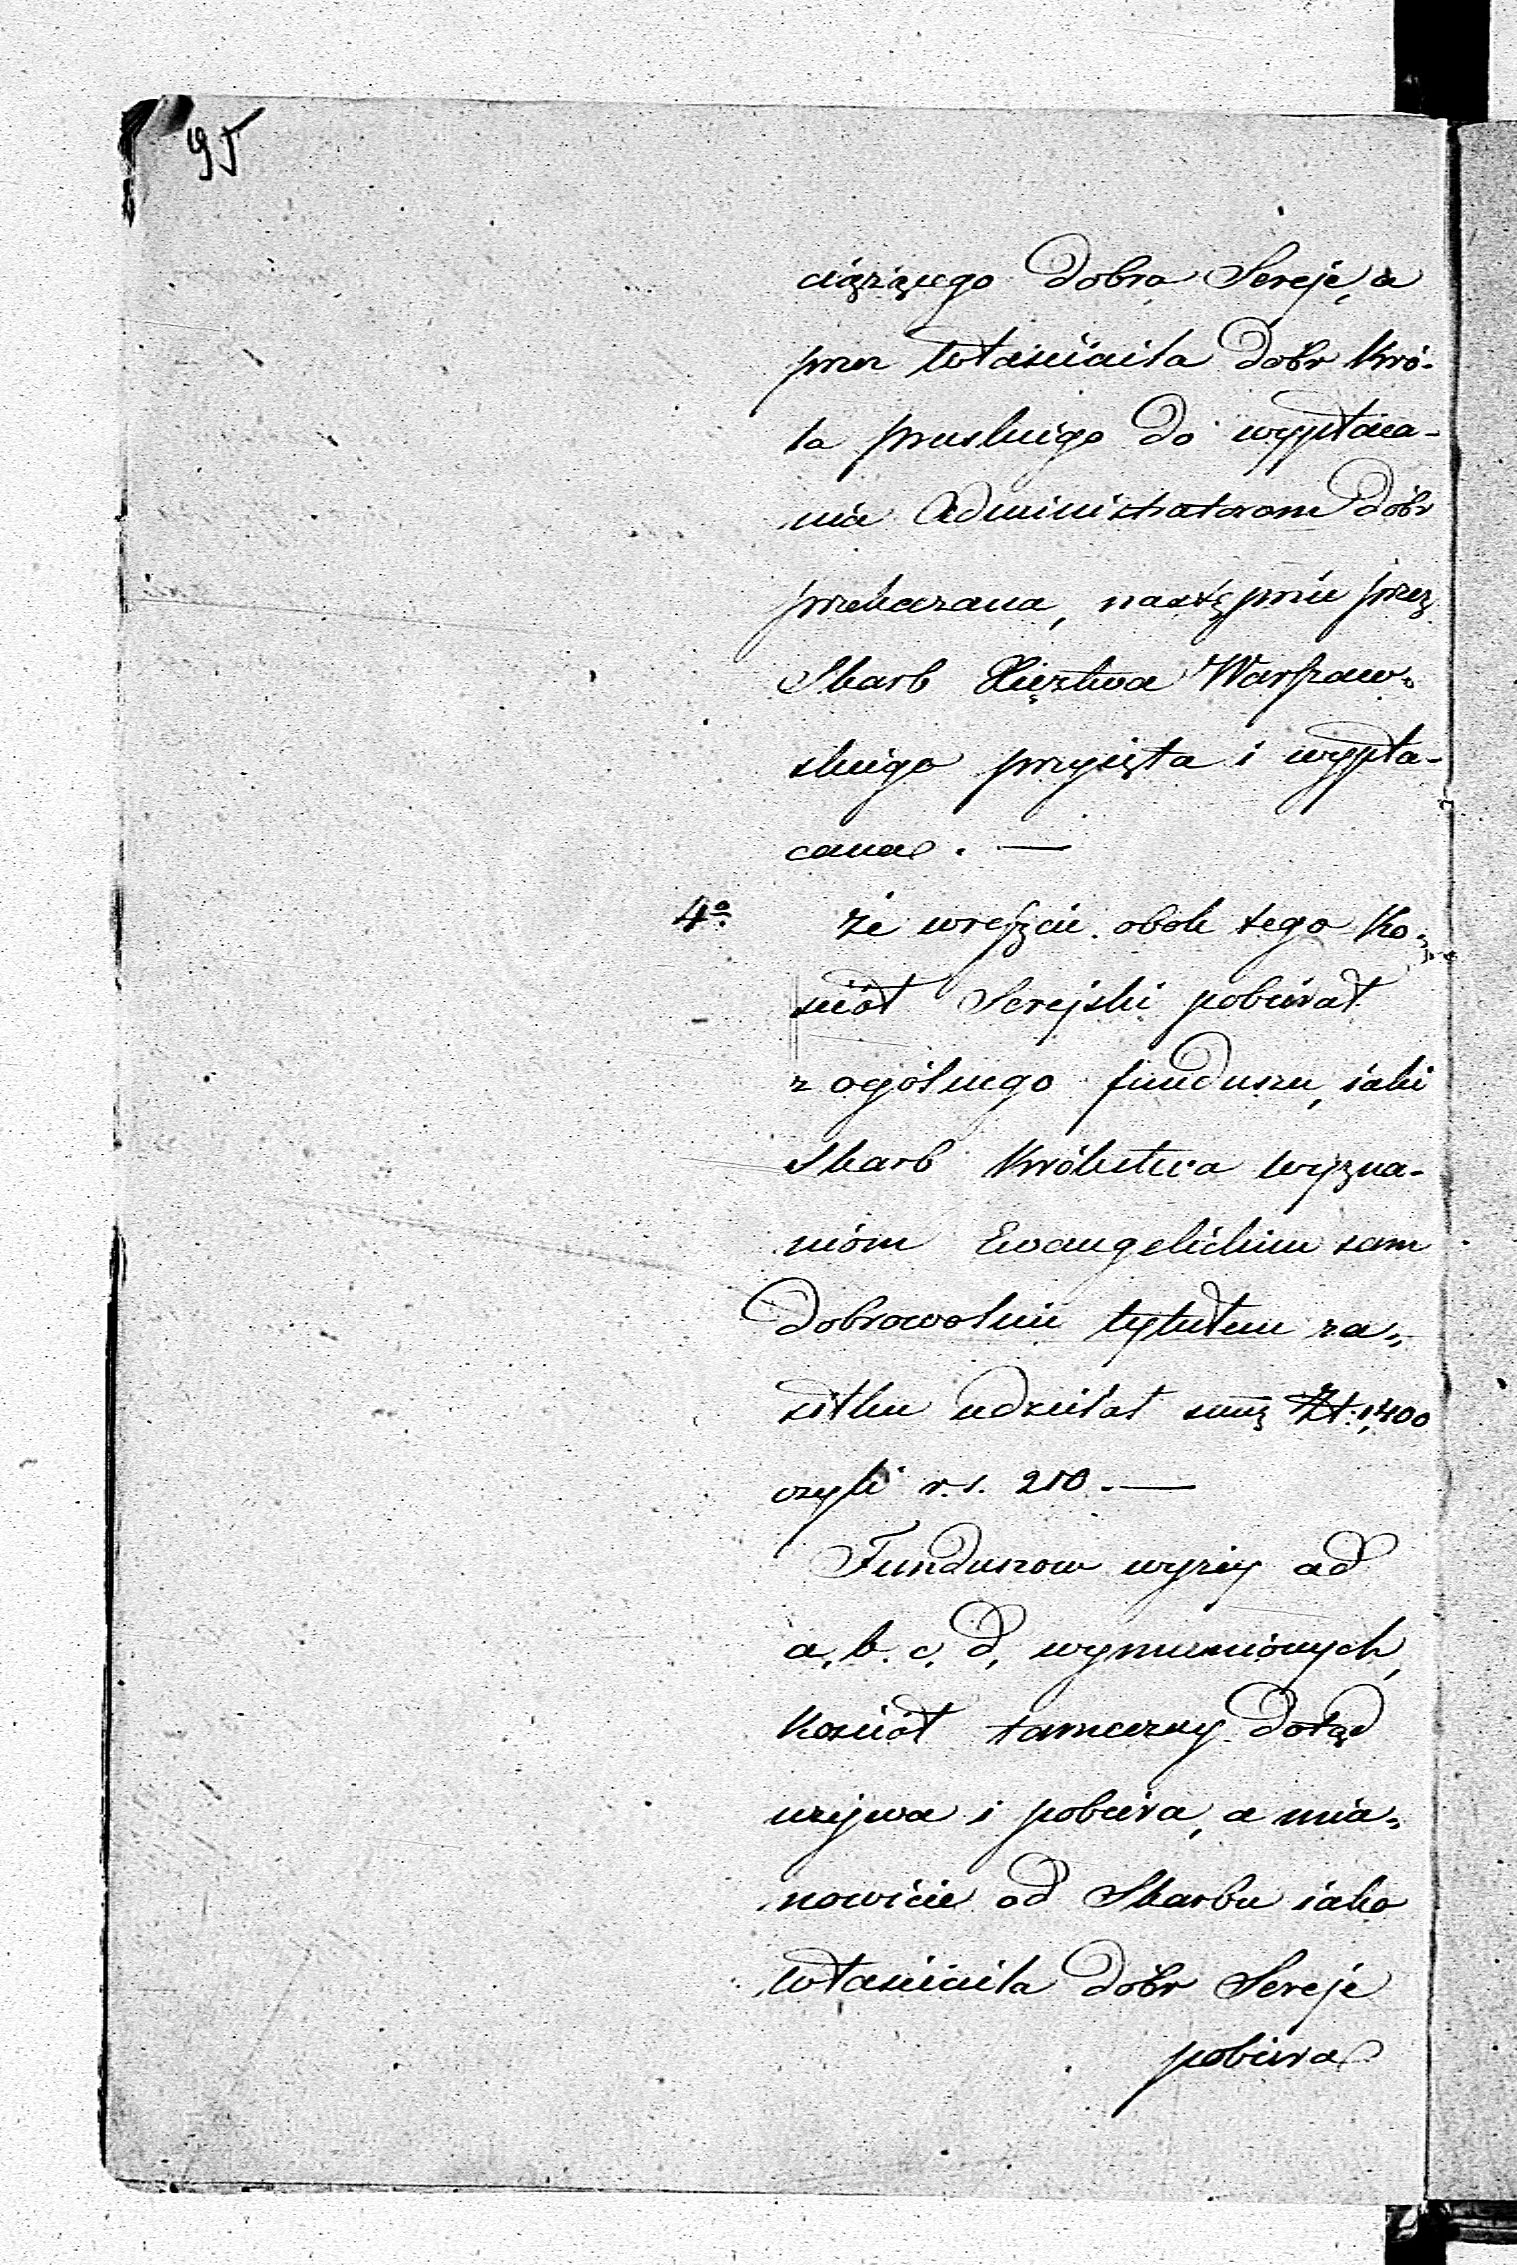 95
ciążącego dobra Sereje, a
przez właściciela dobr Kró-
la pruskiego do wypłaca-
nia Administratorom dóbr
przekazana, następnie przez
Skarb Xięztwa Warszaw-
skiego przyięta i wypła-
cana. —
4º że wreszcie obok tego Ko-
ściół Serejski pobierał
z ogólnego funduszu, iaki
Skarb Królestwa wyzna-
niom Ewangelickim sam
dobrowolnie tytułem za-
siłku udzielał sumę Zł: 1,400
czyli r.s. 210. —
Funduszow wyżey ad
a, b. c, d, wymienionych,
Kościół tameczny dotąd
używa i pobiera, a mia-
nowicie od Skarbu iako
właściciela dóbr Sereje
pobiera